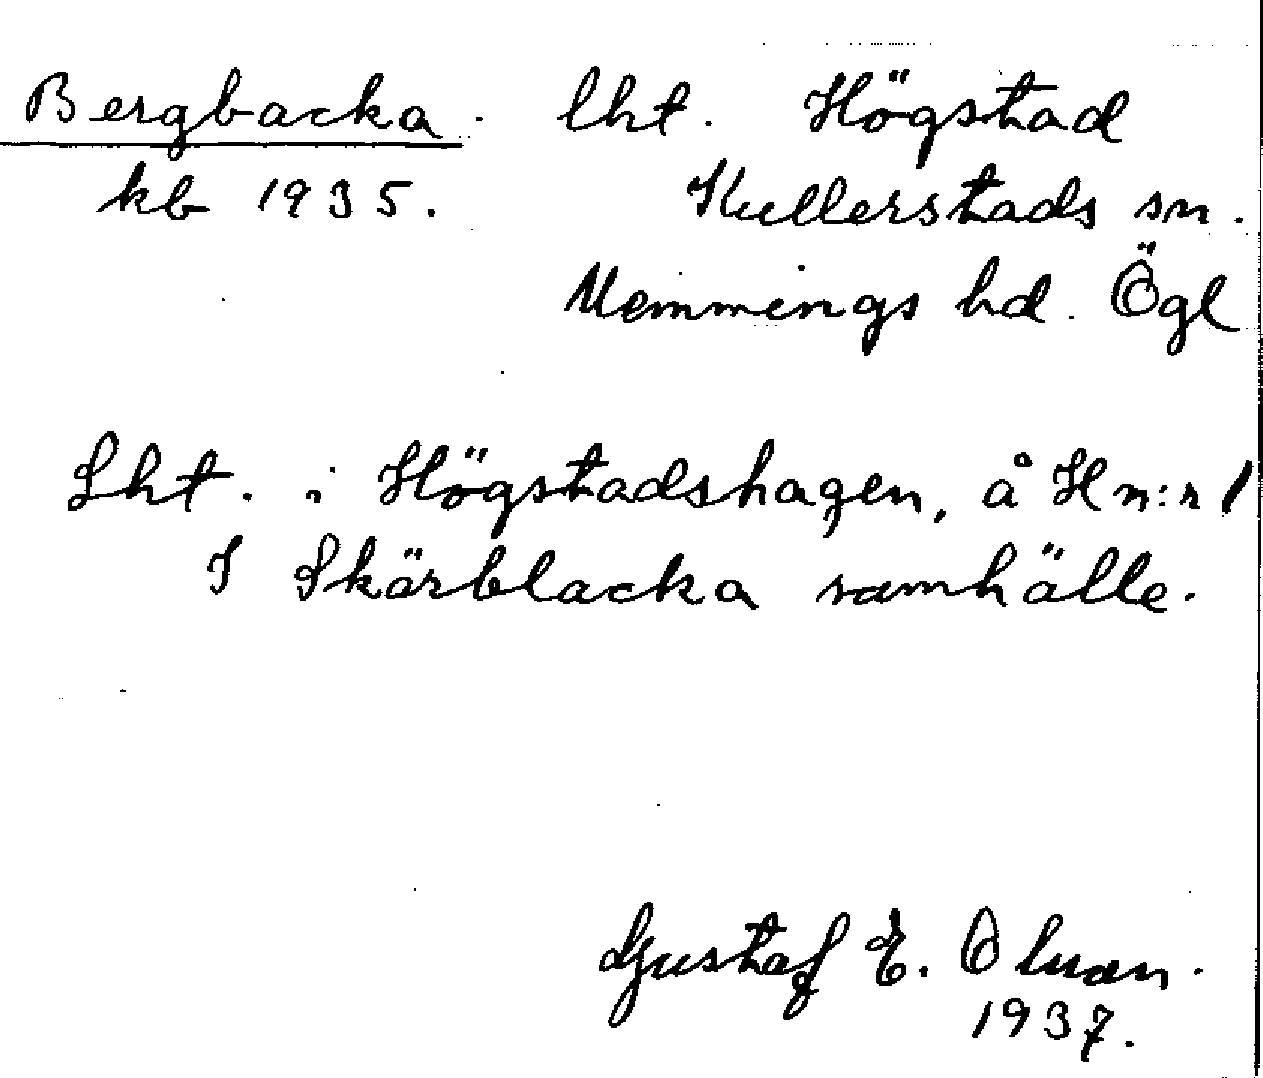 Bergbacka. lht. Högstad
kb 1935. Kullerstads sn.
Memmings hd. Ögl
Lht. i Högstadshagen, å H n:r 1
I Skärblacka samhälle.
Gustaf E. Olman.
1937.